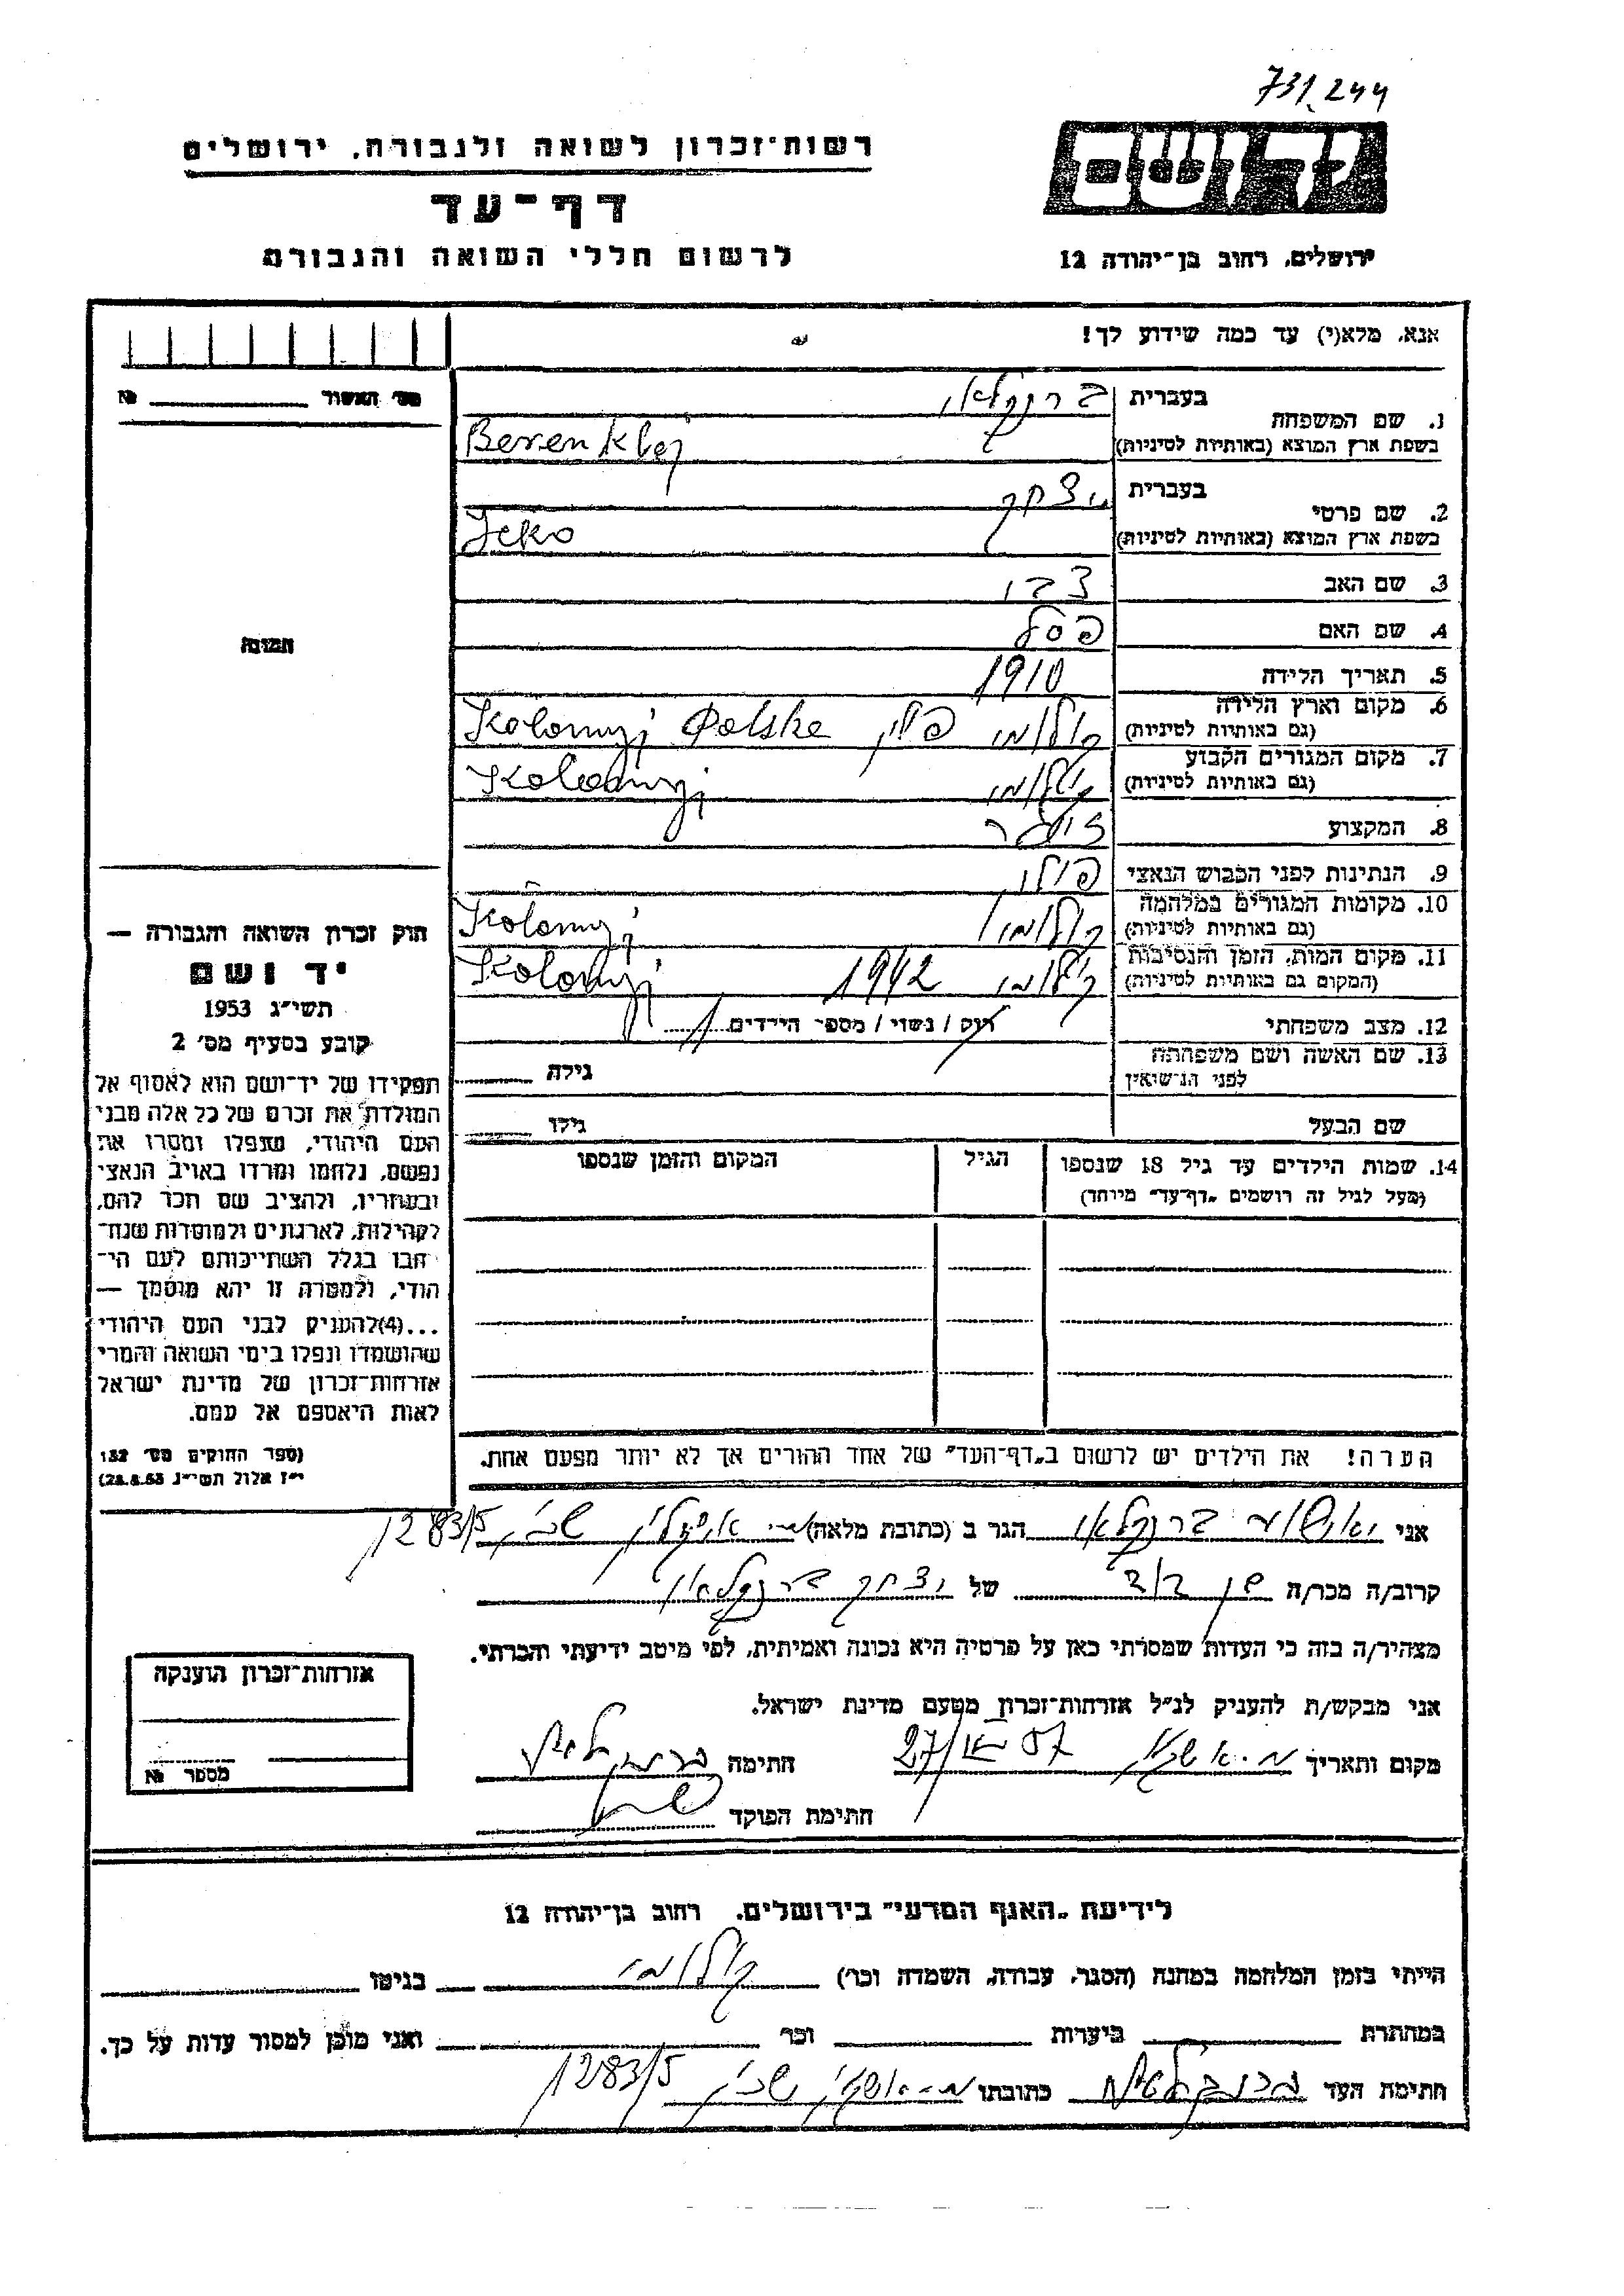 731.244
רשות־זכרון לשואה ולגבורה, ירושלים
דף־עד
לרשום חללי השואה והגבורה
יד ושם
ירושלים, רחוב בן־יהודה 12
אנא, מלא(י) עד כמה שידוע לך!
מס׳ האשור № 
תמונה
1. שם המשפחה בעברית ברנקלאו
בשפת ארץ המוצא (באותיות לטיניות) Berenklej
2. שם פרטי בעברית יצחק
בשפת ארץ המוצא (באותיות לטיניות) Icko
3. שם האב צבי
4. שם האם פסל
5. תאריך הלידה 1910
6. מקום וארץ הלידה קולומי פולין Kolomyj Polske
(גם באותיות לטיניות)
7. מקום המגורים הקבוע קולומי Kolomyj
(גם באותיות לטיניות)
8. המקצוע
9. הנתינות לפני הכבוש הנאצי פולין
10. מקומות המגורים במלחמה קולומי Kolomyj
(גם באותיות לטיניות)
11. מקום המות, הזמן והנסיבות קולומי 1942 Kolomyj
(המקום גם באותיות לטיניות)
12. מצב משפחתי רווק / נשוי / מספר הילדים
13. שם האשה ושם משפחתה גילה
לפני הנישואין
שם הבעל גילו
14. שמות הילדים עד גיל 18 שנספו הגיל המקום והזמן שנספו
(מעל לגיל זה רושמים „דף־עד” מיוחד)
הערה! את הילדים יש לרשום ב„דף־העד” של אחד ההורים אך לא יותר מפעם אחת.
חוק זכרון השואה והגבורה —
יד ושם
תשי״ג 1953
קובע בסעיף מס׳ 2
תפקידו של יד־ושם הוא לאסוף אל
המולדת את זכרם של כל אלה מבני
העם היהודי, שנפלו ומסרו את
נפשם, נלחמו ומרדו באויב הנאצי
ובעוזריו, ולהציב שם וזכר להם,
לקהילות, לארגונים ולמוסדות שנח־
רבו בגלל השתייכותם לעם הי־
הודי, ולמטרה זו יהא מוסמך —
...(4)להעניק לבני העם היהודי
שהושמדו ונפלו בימי השואה והמרי
אזרחות־זכרון של מדינת ישראל
לאות היאספם אל עמם.
(ספר החוקים מס׳ 132
י״ז אלול תשי״ג 28.8.53)
אני ברנקלאו הגר ב (כתובת מלאה) שכ׳ 1283/5
קרוב/ה מכר/ה בן דוד של יצחק ברנקלאו
מצהיר/ה בזה כי העדות שמסרתי כאן על פרטיה היא נכונה ואמיתית, לפי מיטב ידיעתי והכרתי.
אני מבקש/ת להעניק לנ״ל אזרחות־זכרון מטעם מדינת ישראל.
מקום ותאריך 57 27/ חתימה
חתימת הפוקד
אזרחות־זכרון הוענקה
מספר №
לידיעת „האגף המדעי” בירושלים, רחוב בן־יהודה 12
הייתי בזמן המלחמה במחנה (הסגר, עבודה, השמדה וכר׳) קולומי בגיטו
במחתרת ביערות וכר ואני מוכן למסור עדות על כך.
חתימת העד כתובתו שכ׳ 1283/5